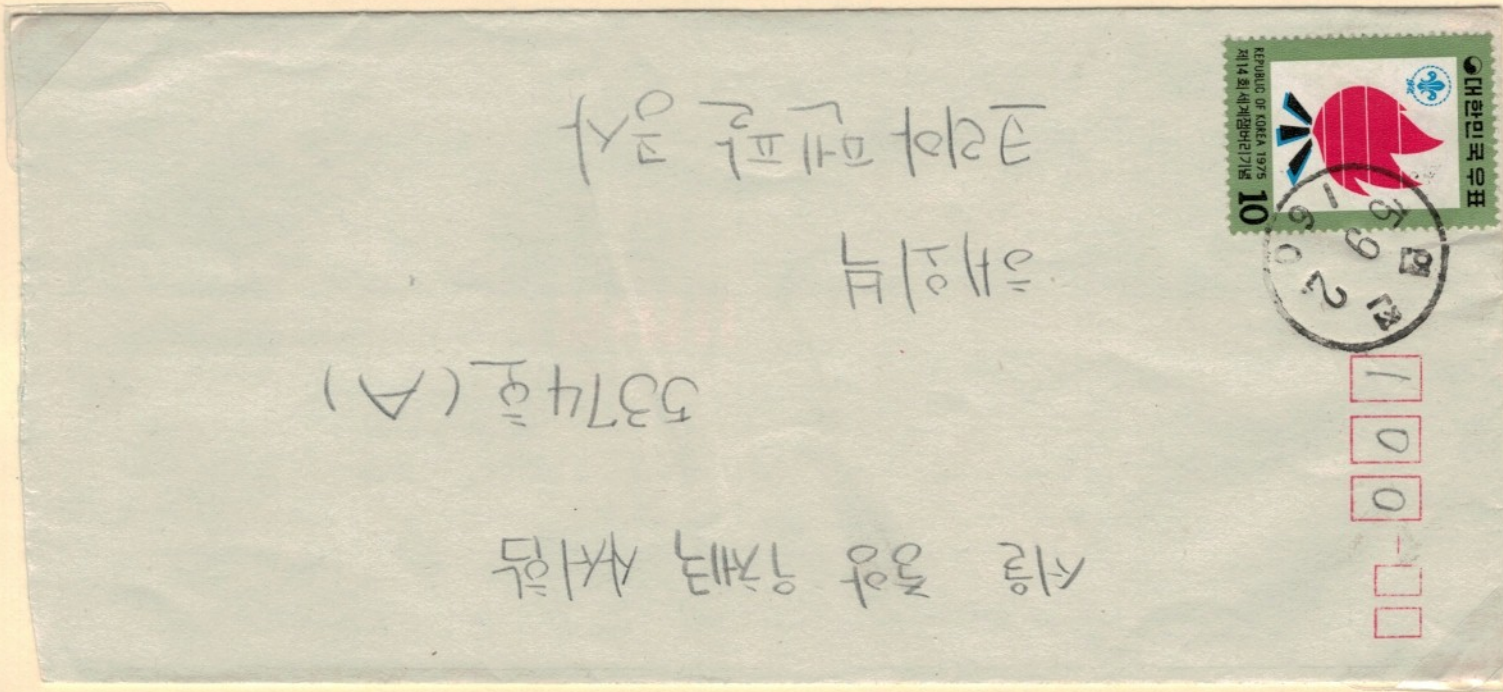 대한민국우표
REPUBLIC OF KOREA 1975
제14회세계잼버리기념
10
100-
서울 중앙 우체국 사서함
5374호(A)
해외부
코리아 펜팔 공사